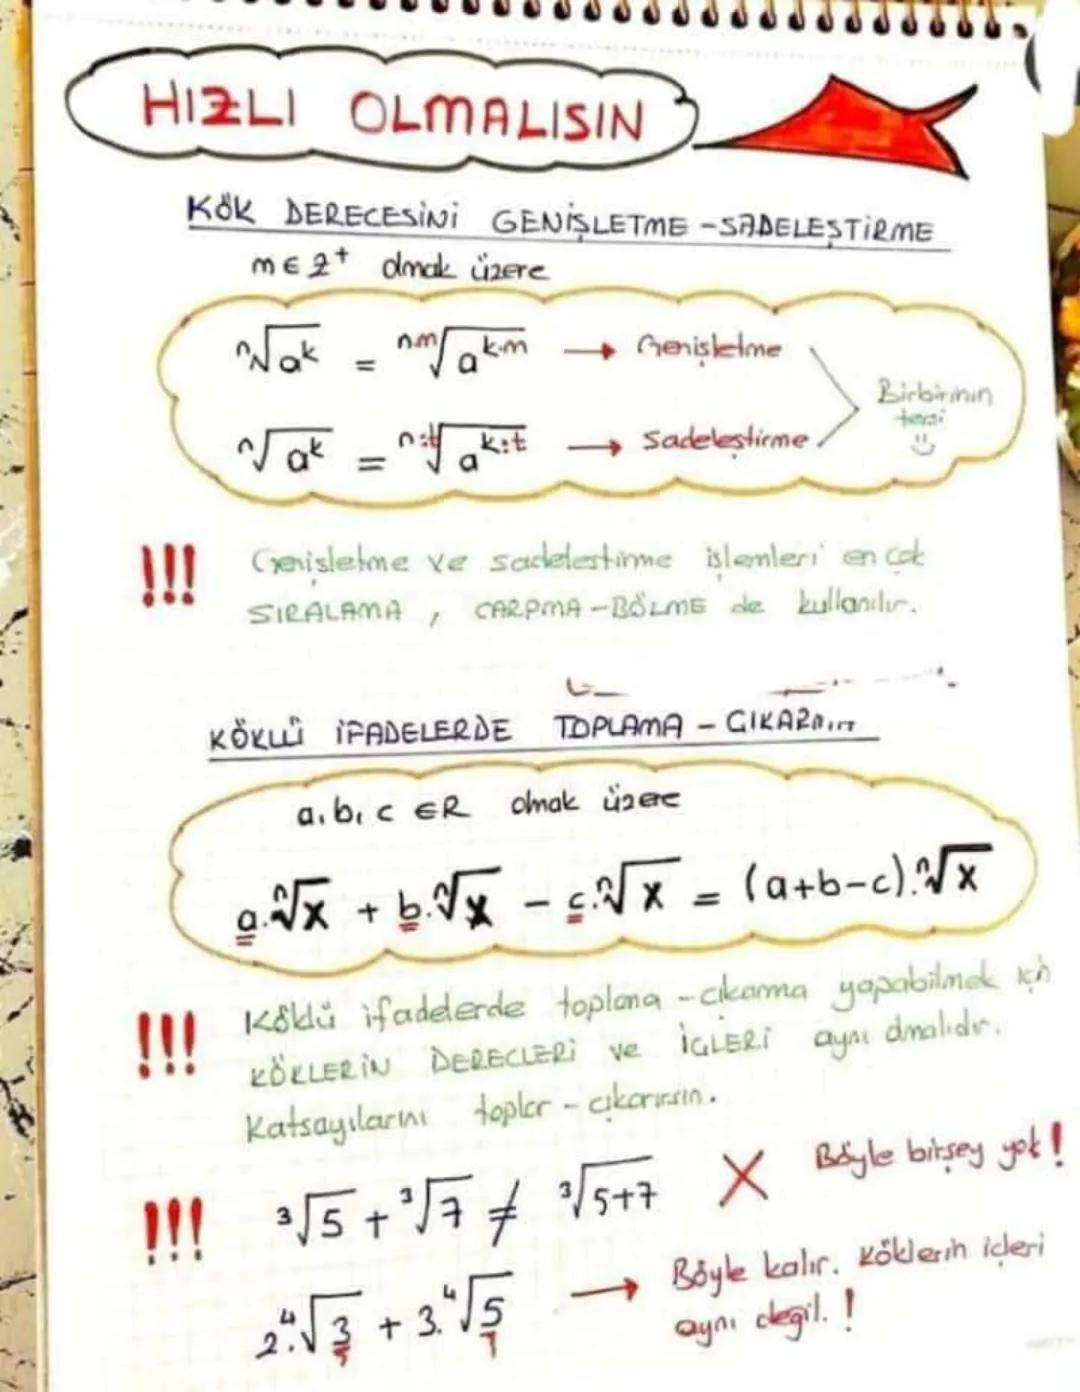 HIZLI OLMALISIN
KÖK DERECESİNİ GENİŞLETME - SADELEŞTİRME
m ∈ Z⁺ olmak üzere
ⁿ√aᵏ = ⁿ·ᵐ√aᵏ·ᵐ → Genişletme
Birbirinin
tersi
ⁿ√aᵏ = ⁿ:ᵗ√aᵏ:ᵗ → Sadeleştirme
!!! Genişletme ve sadeleştirme işlemleri en çok
SIRALAMA, ÇARPMA - BÖLME de kullanılır.
KÖKLÜ İFADELERDE TOPLAMA -
a, b, c ∈ R olmak üzere
a.ⁿ√x + b.ⁿ√x - c.ⁿ√x = (a+b-c).ⁿ√x
!!! Köklü ifadelerde toplama - çıkarma yapabilmek için
KÖKLERİN DERECLERİ ve İÇLERİ aynı olmalıdır.
Katsayılarını toplar - çıkarırsın.
!!! ³√5 + ³√7 ≠ ³√5+7 X Böyle birşey yok!
2.⁴√3 + 3.⁴√5 → Böyle kalır. Köklerin içleri
aynı değil. !